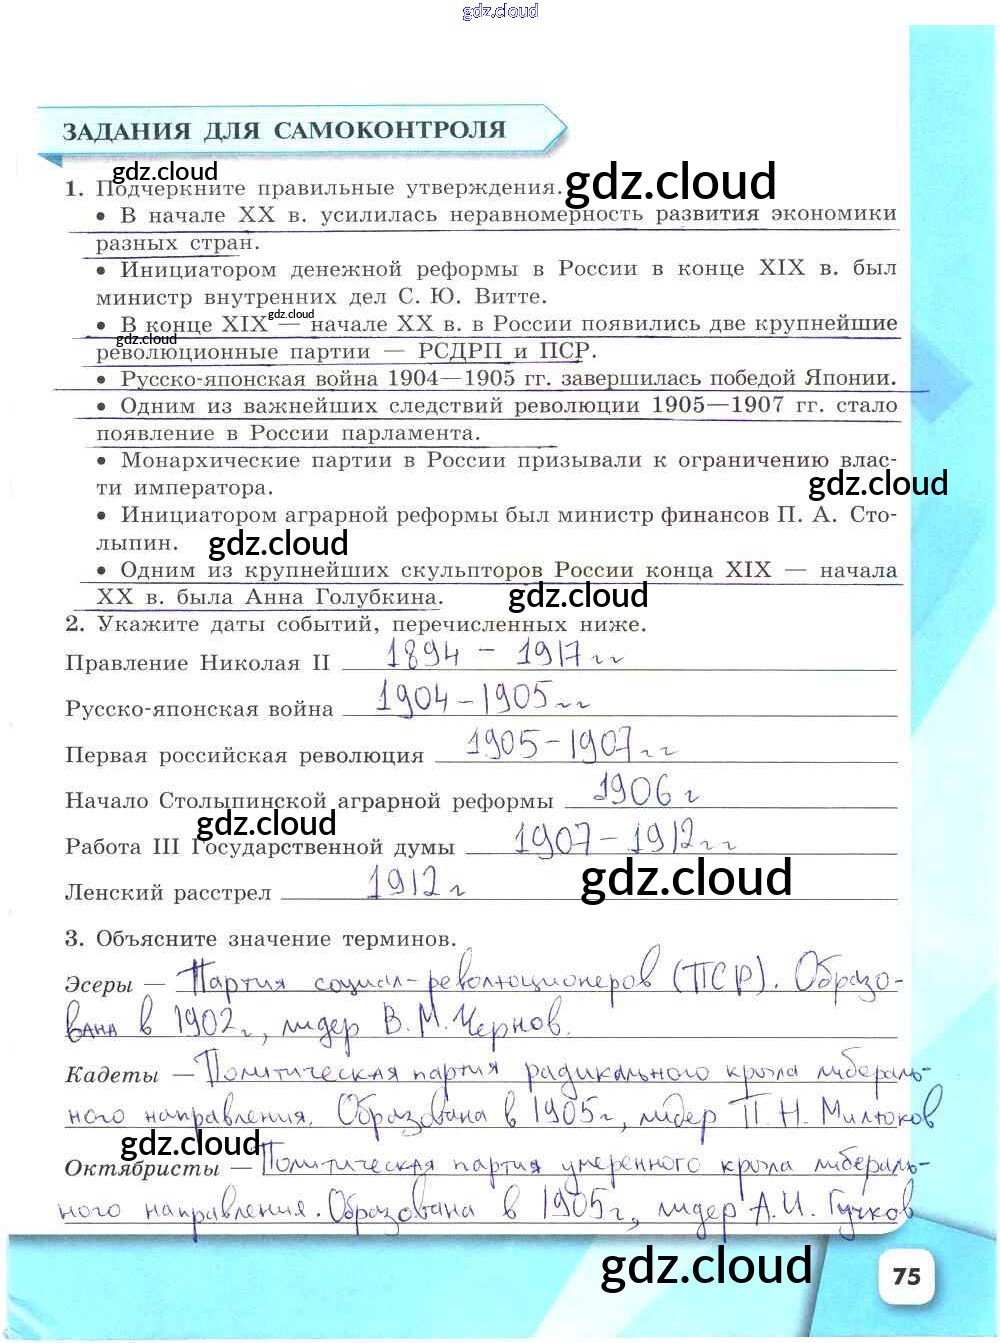 gdz.cloud
ЗАДАНИЯ ДЛЯ САМОКОНТРОЛЯ
gdz.cloud
gdz.cloud
1. Подчеркните правильные утверждения.
• В начале XX в. усилилась неравномерность развития экономики
разных стран.
• Инициатором денежной реформы в России в конце XIX в. был
министр внутренних дел С. Ю. Витте.
gdz.cloud
• В конце XIX — начале XX в. в России появились две крупнейшие
gdz.cloud
революционные партии — РСДРП и ПСР.
• Русско-японская война 1904—1905 гг. завершилась победой Японии.
• Одним из важнейших следствий революции 1905—1907 гг. стало
появление в России парламента.
• Монархические партии в России призывали к ограничению влас-
ти императора.
gdz.cloud
• Инициатором аграрной реформы был министр финансов П. А. Сто-
лыпин.
gdz.cloud
• Одним из крупнейших скульпторов России конца XIX — начала
XX в. была Анна Голубкина.
gdz.cloud
2. Укажите даты событий, перечисленных ниже.
Правление Николая II 1894 - 1917 гг
Русско-японская война 1904-1905 гг
Первая российская революция 1905-1907 г г
Начало Столыпинской аграрной реформы 1906 г
gdz.cloud
Работа III Государственной думы 1907-1912 г г
Ленский расстрел 1912 г
gdz.cloud
3. Объясните значение терминов.
Эсеры — Партия социал-революционеров (ПСР). Образо-
вана в 1902 г, лидер В.М.Чернов.
Кадеты — Политическая партия радикального крыла либераль-
ного направления. Образована в 1905г, лидер П. Н. Милюков
gdz.cloud
Октябристы — Политическая партия умеренного крыла либераль-
ного направления. Образована в 1905г, лидер А.И. Гучков
gdz.cloud
75